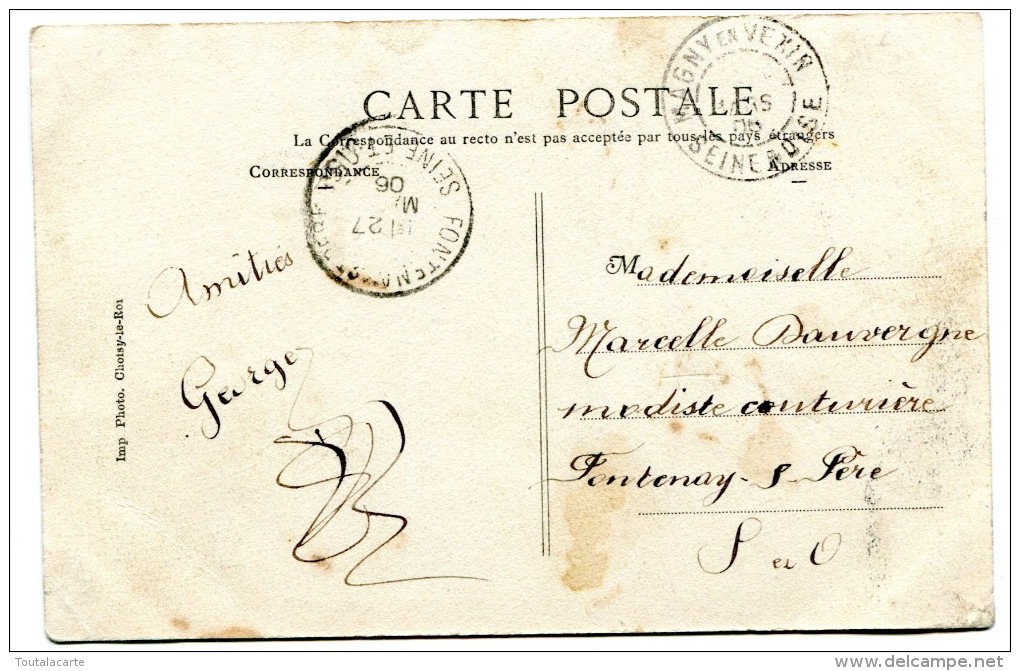 CARTE POSTALE
La Correspondance au recto n'est pas acceptée par tous les pays étrangers
CORRESPONDANCE
ADRESSE
MAGNY EN VEXIN
SEINE & OISE
FONTENAY
SEINE ET OISE
27
06
Amitiés
George
Imp Photo. Choisy-le-Roi
Mademoiselle
Marcelle Dauvergne
modiste couturière
Fontenay-s-Père
S et O
Toutalacarte
delcampe.net